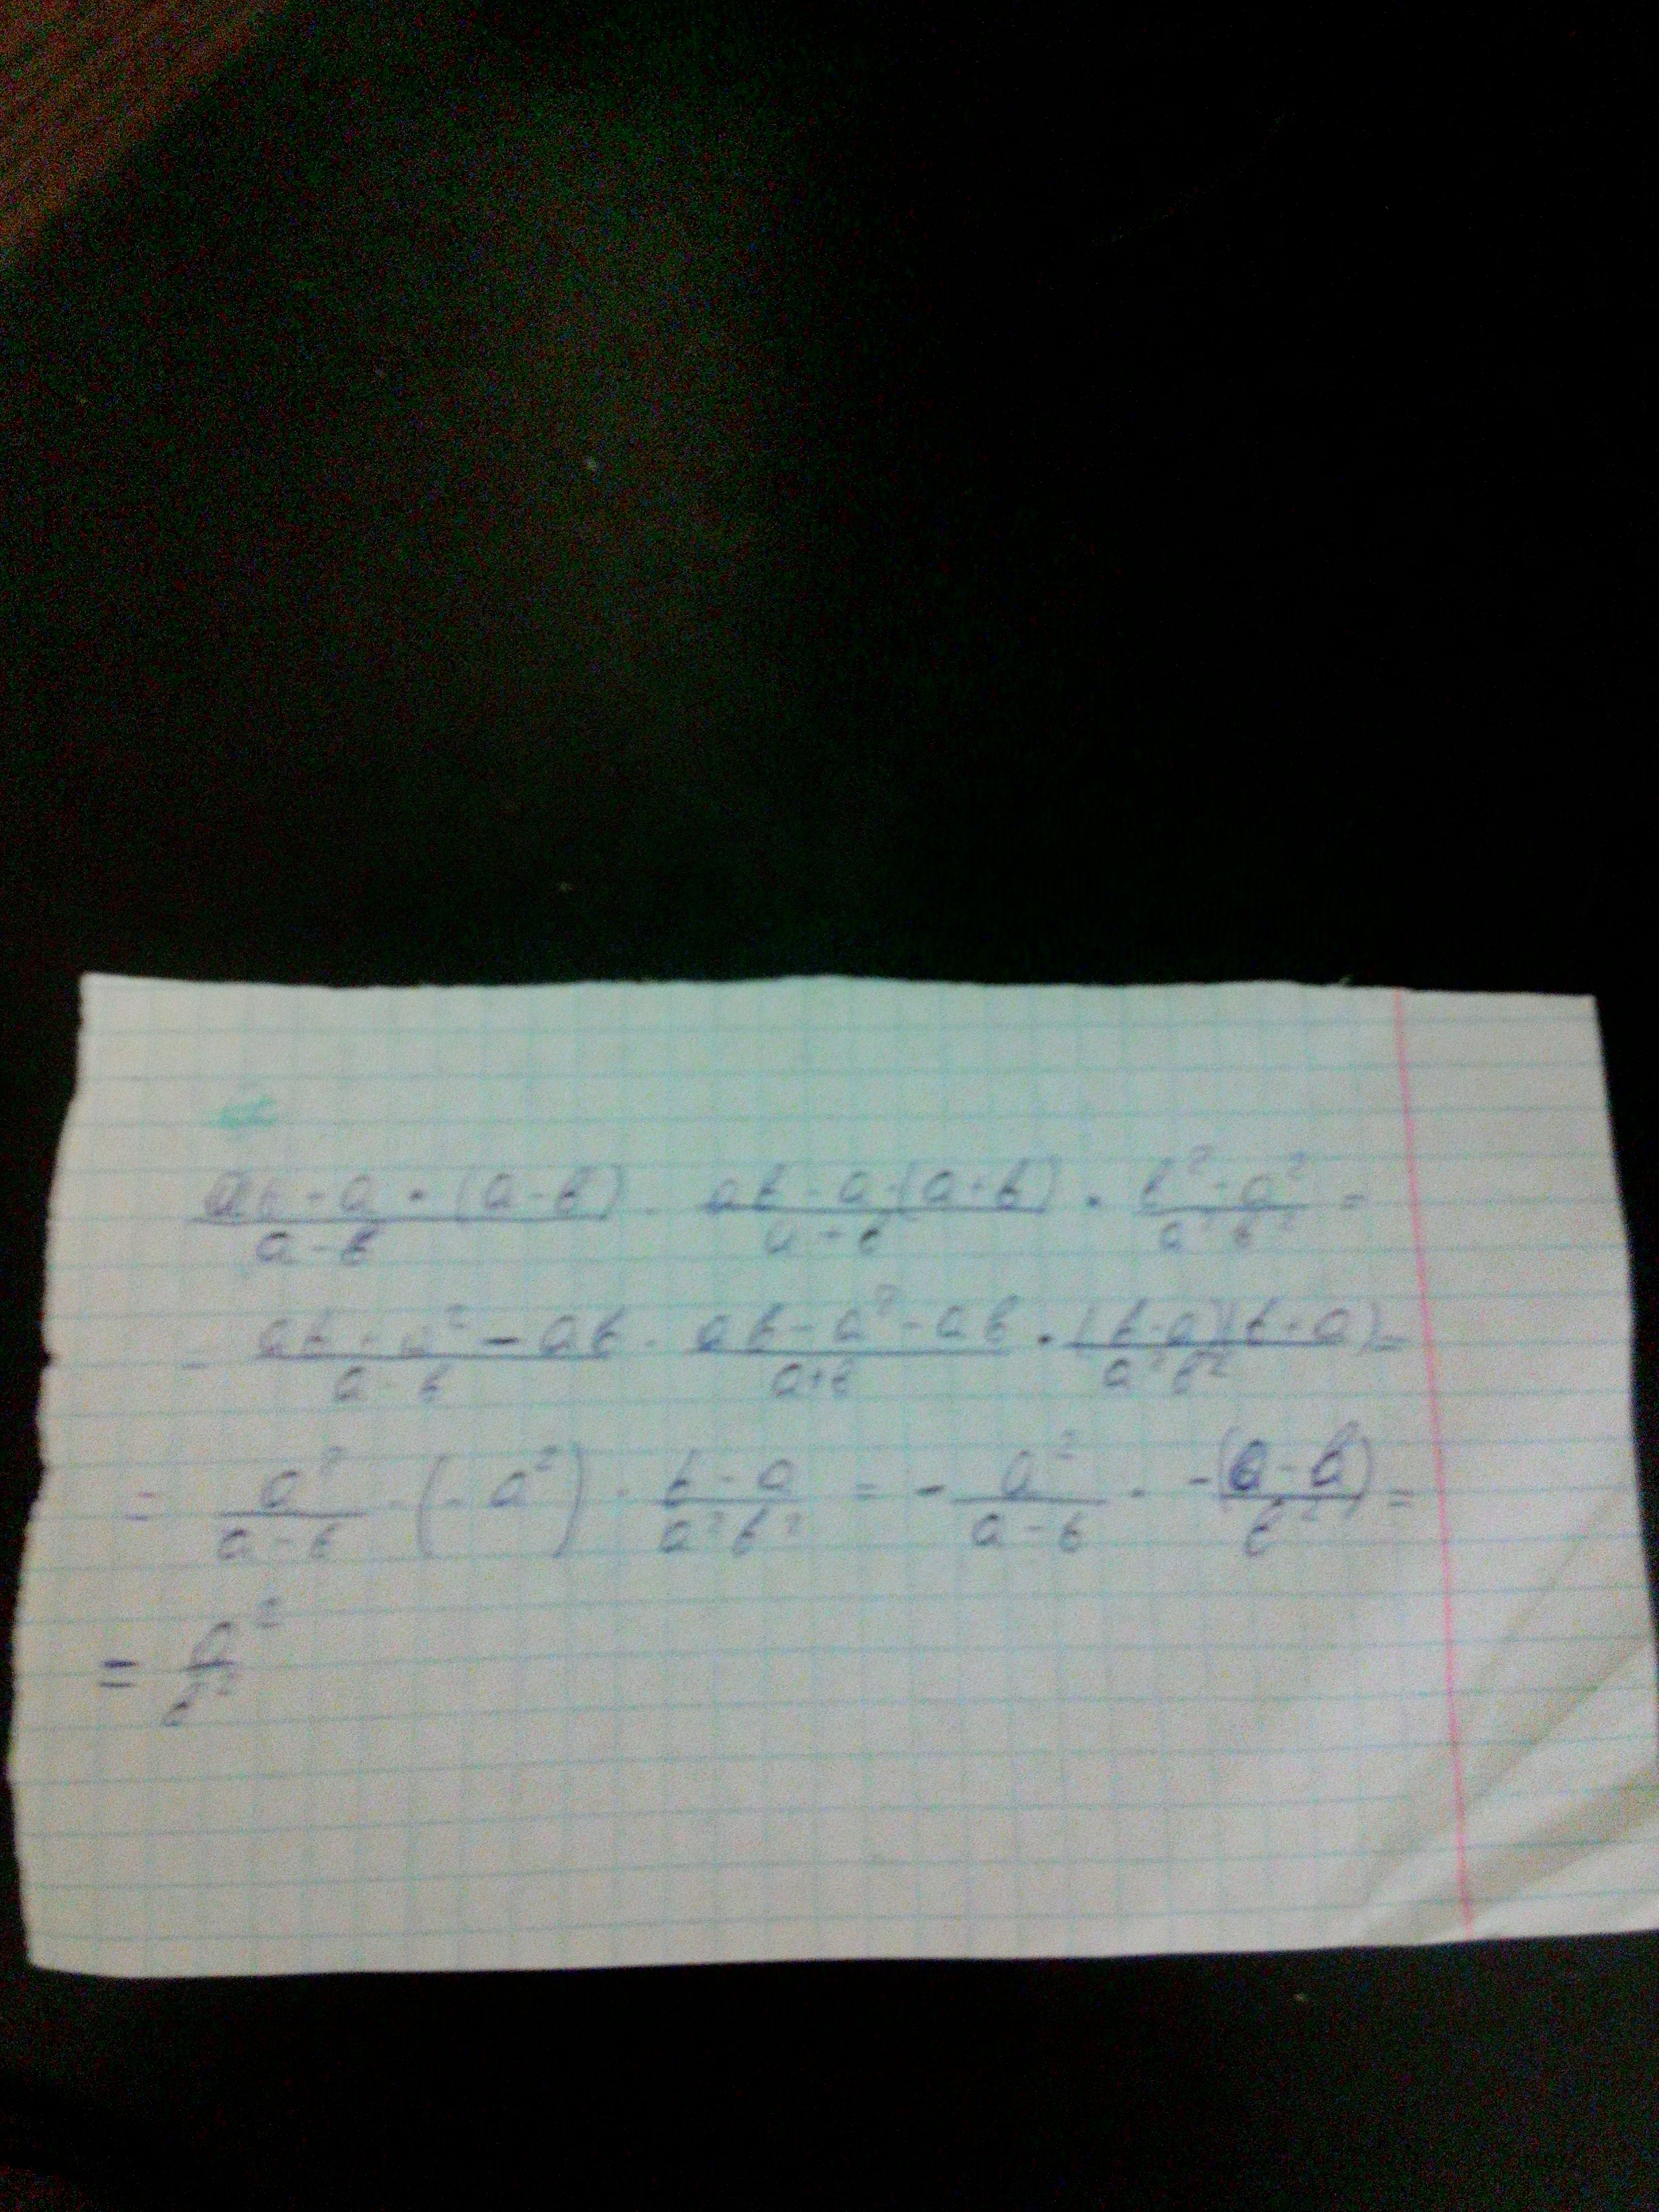 (ab + a · (a - b))/(a - b) · (ab - a · (a + b))/(a + b) · (b² - a²)/(a²b²) =
= (ab + a² - ab)/(a - b) · (ab - a² - ab)/(a + b) · ((b - a)(b + a))/(a²b²) =
= a²/(a - b) · (-a²) · (b - a)/(a²b²) = - a²/(a - b) · -(a - b)/b² =
= a²/b²